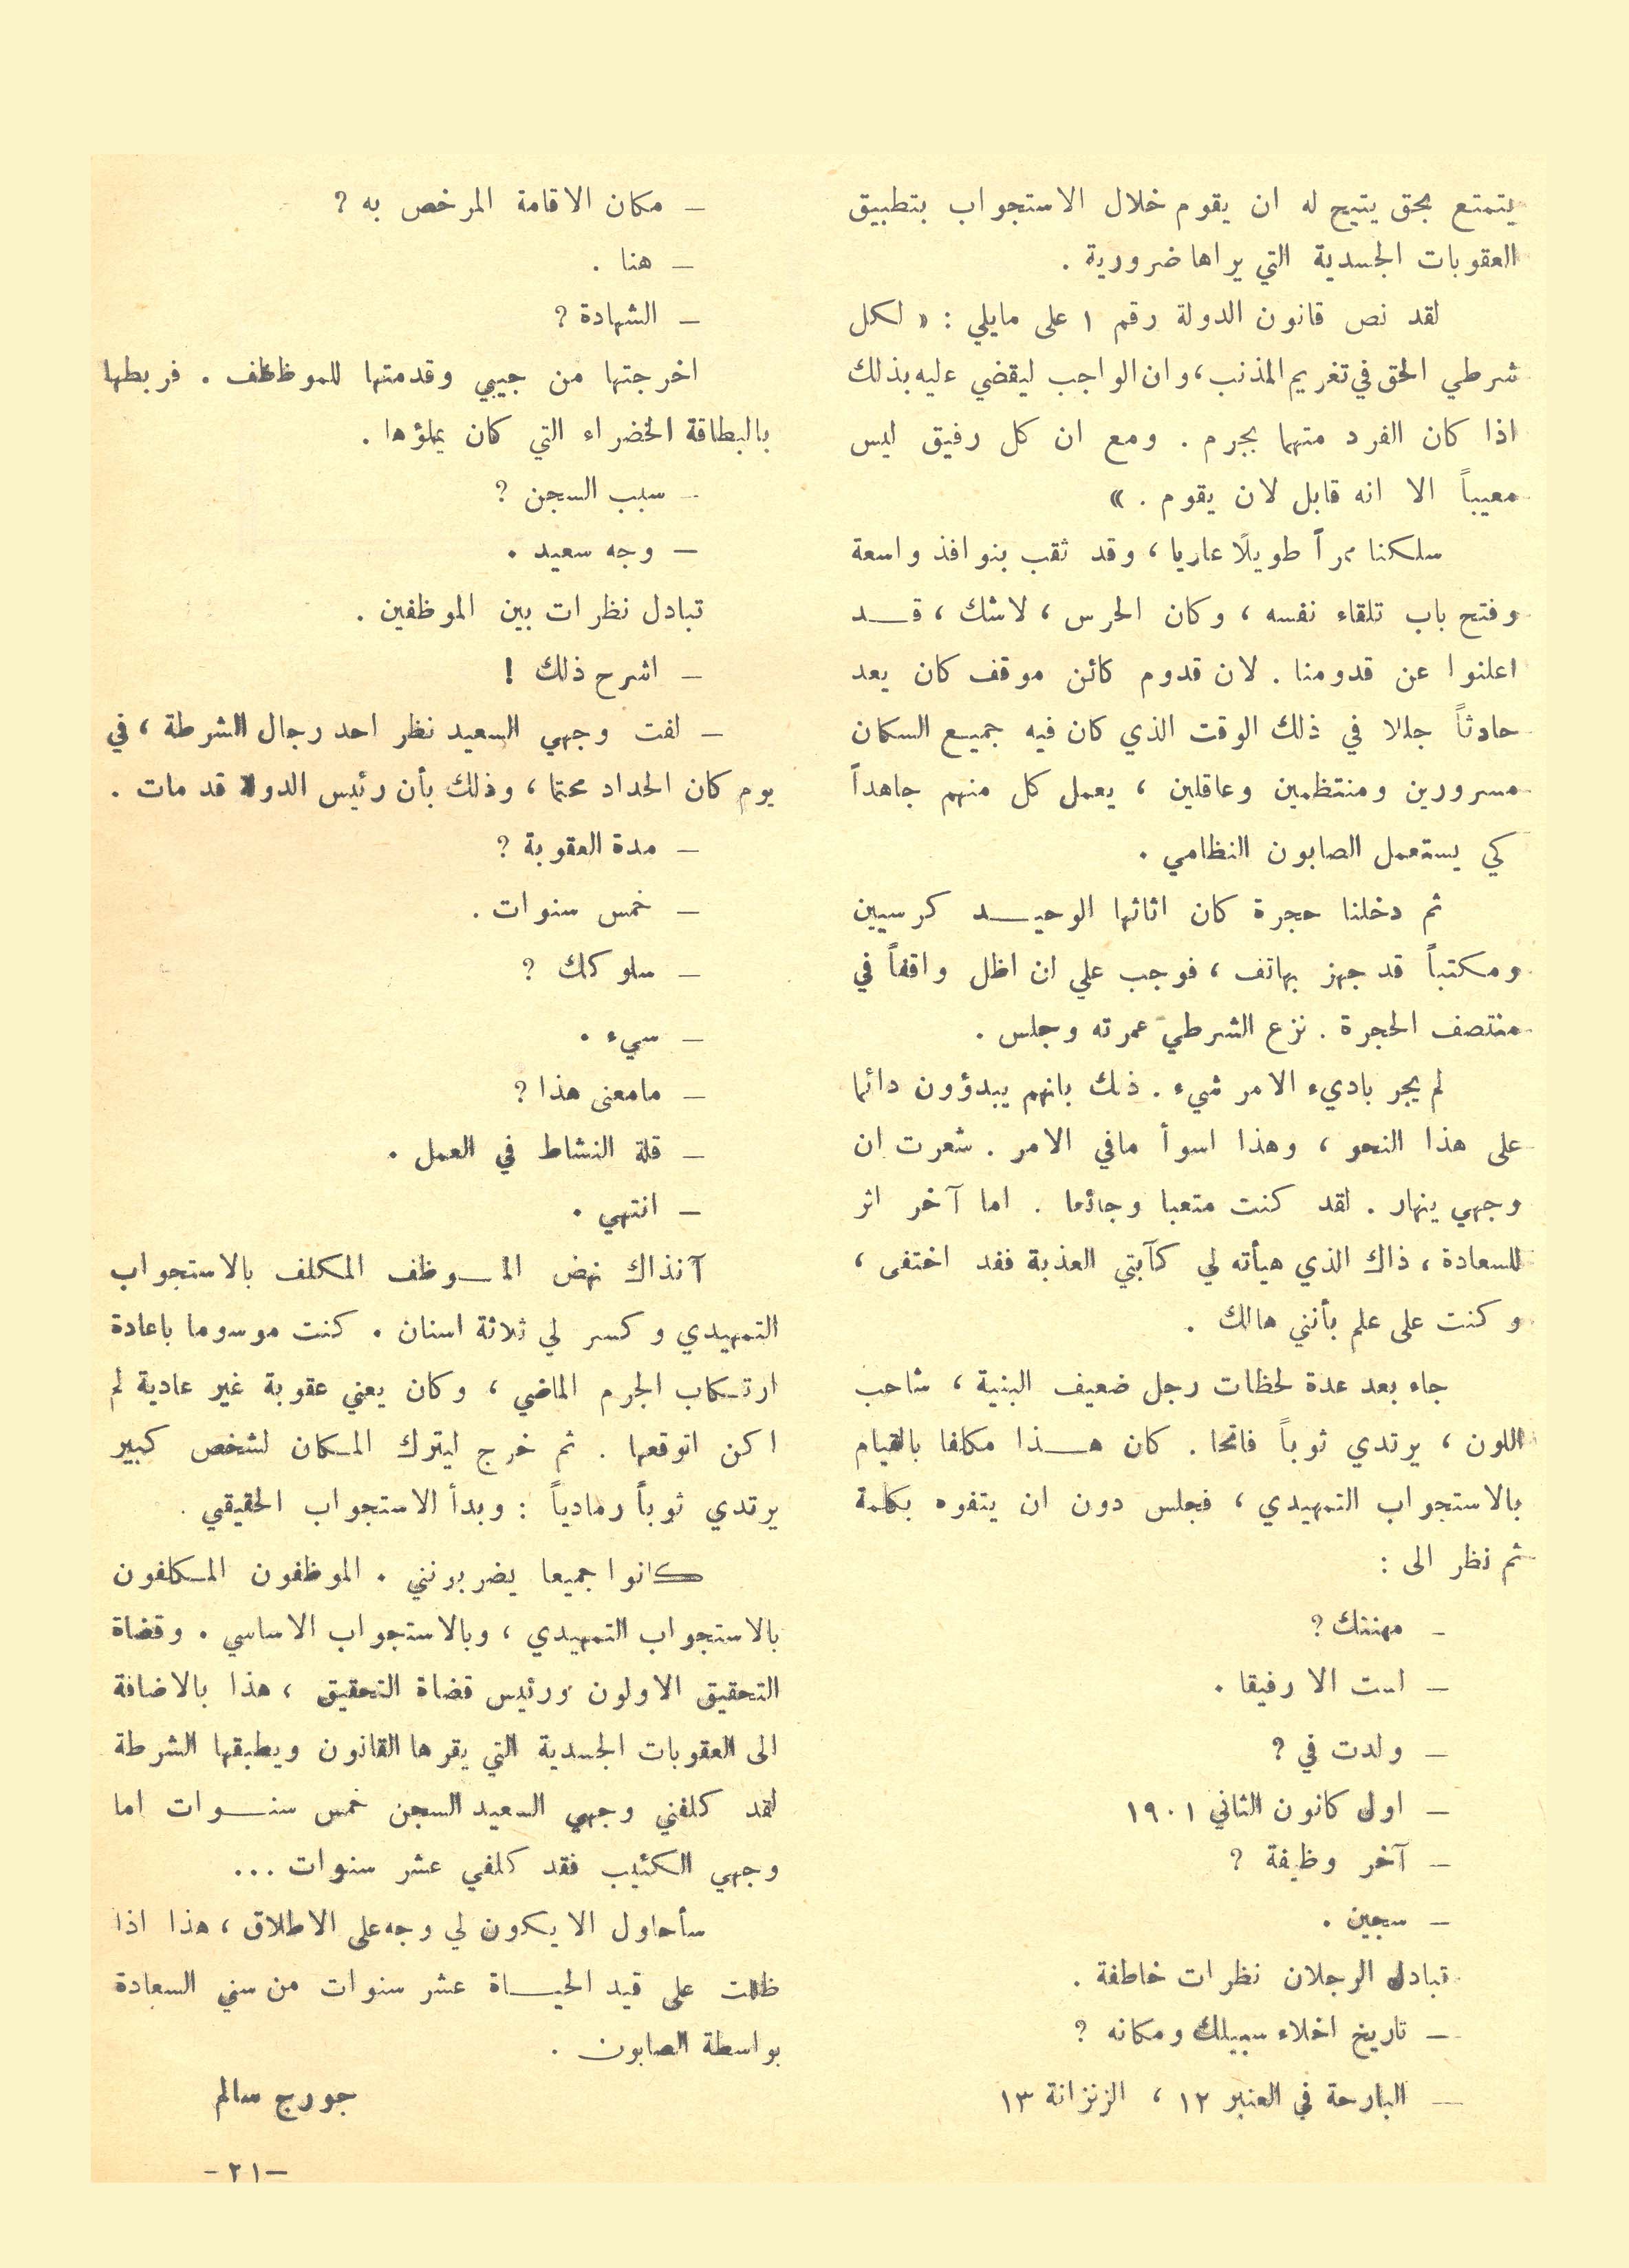 يتمتع بحق يتيح له ان يقوم خلال الاستجواب بتطبيق
العقوبات الجسدية التي يراها ضرورية .
لقد نص قانون الدولة رقم ١ على مايلي : « لكل
شرطي الحق في تغريم المذنب ، وان الواجب ليقضي عليه بذلك
اذا كان الفرد متهما بجرم . ومع ان كل رفيق ليس
معيباً الا انه قابل لان يقوم . »
سلكنا ممراً طويلًا عاريا ، وقد ثقب بنوافذ واسعة
وفتح باب تلقاء نفسه ، وكان الحرس ، لاشك ، قـــد
اعلنوا عن قدومنا . لان قدوم كائن موقف كان يعد
حادثاً جللا في ذلك الوقت الذي كان فيه جميع السكان
مسرورين ومنتظمين وعاقلين ، يعمل كل منهم جاهداً
كي يستعمل الصابون النظامي .
ثم دخلنا حجرة كان اثاثها الوحيـــد كرسيين
ومكتباً قد جهز بهاتف ، فوجب علي ان اظل واقفاً في
منتصف الحجرة . نزع الشرطي عمرته وجلس .
لم يجر باديء الامر شيء . ذلك بانهم يبدؤون دائما
على هذا النحو ، وهذا اسوأ مافي الامر . شعرت ان
وجهي ينهار . لقد كنت متعبا وجائعا . اما آخر اثر
للسعادة ، ذاك الذي هيأته لي كآبتي العذبة فقد اختفى ،
وكنت على علم بأنني هالك .
جاء بعد عدة لحظات رجل ضعيف البنية ، شاحب
اللون ، يرتدي ثوباً فاتحا . كان هـــذا مكلفا بالقيام
بالاستجواب التمهيدي ، فجلس دون ان يتفوه بكلمة
ثم نظر الى :
– مهنتك ؟
– لست الا رفيقا .
– ولدت في ؟
– اول كانون الثاني ١٩٠١
– آخر وظيفة ؟
– سجين .
تبادل الرجلان نظرات خاطفة .
– تاريخ اخلاء سبيلك ومكانه ؟
– البارحة في العنبر ١٢ ، الزنزانة ١٣
– مكان الاقامة المرخص به ؟
– هنا .
– الشهادة ؟
اخرجتها من جيبي وقدمتها للموظف . فربطها
بالبطاقة الخضراء التي كان يملؤها .
– سبب السجن ؟
– وجه سعيد .
تبادل نظرات بين الموظفين .
– اشرح ذلك !
– لفت وجهي السعيد نظر احد رجال الشرطة ، في
يوم كان الحداد محتما ، وذلك بأن رئيس الدولة قد مات .
– مدة العقوبة ؟
– خمس سنوات .
– سلوكك ؟
– سيء .
– مامعنى هذا ؟
– قلة النشاط في العمل .
– انتهي .
آنذاك نهض المـــوظف المكلف بالاستجواب
التمهيدي وكسر لي ثلاثة اسنان . كنت موسوما باعادة
ارتكاب الجرم الماضي ، وكان يعني عقوبة غير عادية لم
اكن اتوقعها . ثم خرج ليترك المكان لشخص كبير
يرتدي ثوباً رمادياً : وبدأ الاستجواب الحقيقي .
كانوا جميعا يضربونني . الموظفون المكلفون
بالاستجواب التمهيدي ، وبالاستجواب الاساسي . وقضاة
التحقيق الاولون ورئيس قضاة التحقيق ، هذا بالاضافة
الى العقوبات الجسدية التي يقرها القانون ويطبقها الشرطة
لقد كلفني وجهي السعيد السجن خمس سنـــوات اما
وجهي الكئيب فقد كلفي عشر سنوات ...
سأحاول الا يكون لي وجه على الاطلاق ، هذا اذا
ظللت على قيد الحيـــاة عشر سنوات من سني السعادة
بواسطة الصابون .
جورج سالم
–٢١–